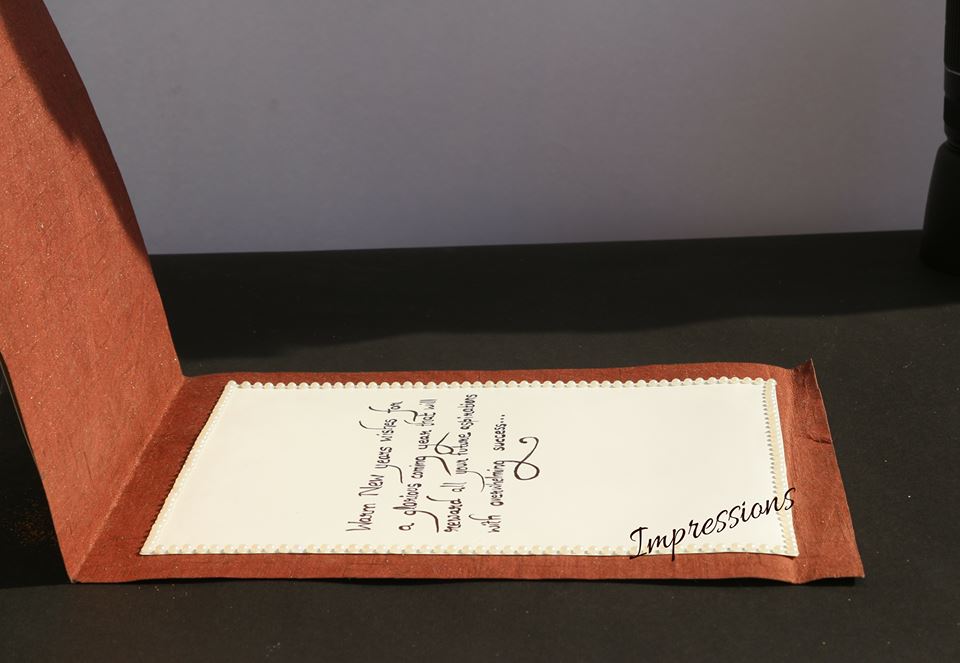 Warm New years wishes for
a glorious coming year that will
reward all your future aspirations
with overwhelming success...
Impressions